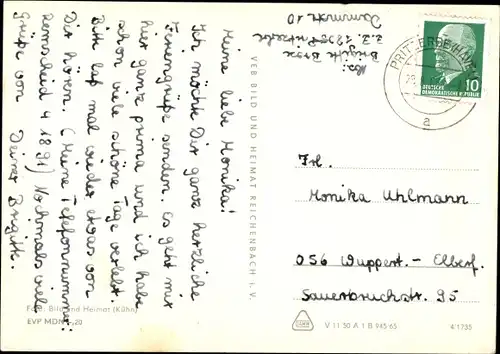 Meine liebe Monika!
Ich möchte Dir ganz herzliche
Feriengrüße senden. Es geht mir
hier ganz prima und ich habe
schon viele schöne Tage verlebt.
Bitte laß mal wieder etwas von
Dir hören. (Meine Telefonnummer:
Remscheid 4 1891) Nochmals viele
Grüße von Deiner Brigitte.
Abs:
Brigitte
z.Z. 1951 Pritzerbe
Dammstr. 10
PRITZERBE (HAVEL)
a
DEUTSCHE
DEMOKRATISCHE REPUBLIK
10
VEB BILD UND HEIMAT REICHENBACH i. V.
Frl.
Monika Uhlmann
056 Wuppert.- Elberf.
Sauerbruchstr. 95
Foto: Bild und Heimat (Kühn)
EVP MDN -,20
V 11 50 A 1 B 945/65
4/1735